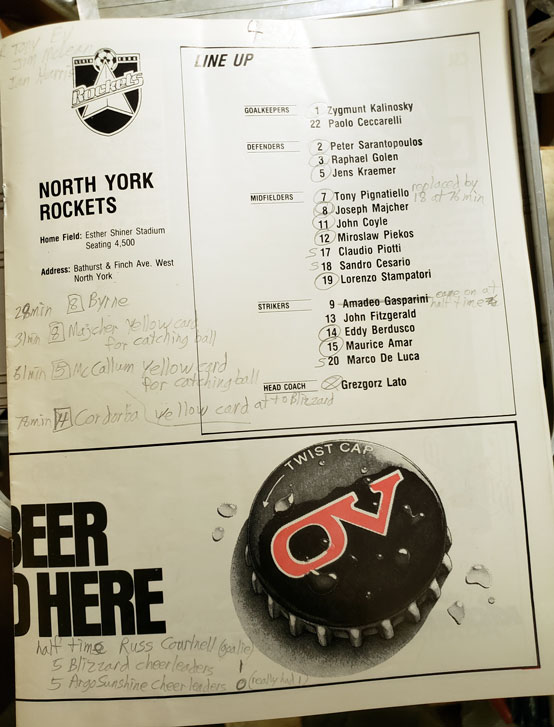 4
Tony
Jim McLean
Ian Harris
NORTH YORK
Rockets
LINE UP
GOALKEEPERS 1 Zygmunt Kalinosky
22 Paolo Ceccarelli
DEFENDERS 2 Peter Sarantopoulos
3 Raphael Golen
5 Jens Kraemer
MIDFIELDERS 7 Tony Pignatiello replaced by
18 at 76 min
8 Joseph Majcher
11 John Coyle
12 Miroslaw Piekos
S 17 Claudio Piotti
S 18 Sandro Cesario
19 Lorenzo Stampatori
STRIKERS 9 Amadeo Gasparini came on at
half time
13 John Fitzgerald
14 Eddy Berdusco
15 Maurice Amar
S 20 Marco De Luca
HEAD COACH Grezgorz Lato
NORTH YORK
ROCKETS
Home Field: Esther Shiner Stadium
Seating 4,500
Address: Bathurst & Finch Ave. West
North York
28min 8 Byrne
31min 8 Majcher yellow card
for catching ball
61min 5 McCallum yellow card
for catching ball
78min 4 Cordorba yellow card at to Blizzard
BEER
HERE
TWIST CAP
OV
half time Russ Courtnell (goalie)
5 Blizzard cheerleaders 1
5 ArgoSunshine Cheerleaders 0 (really had 1)